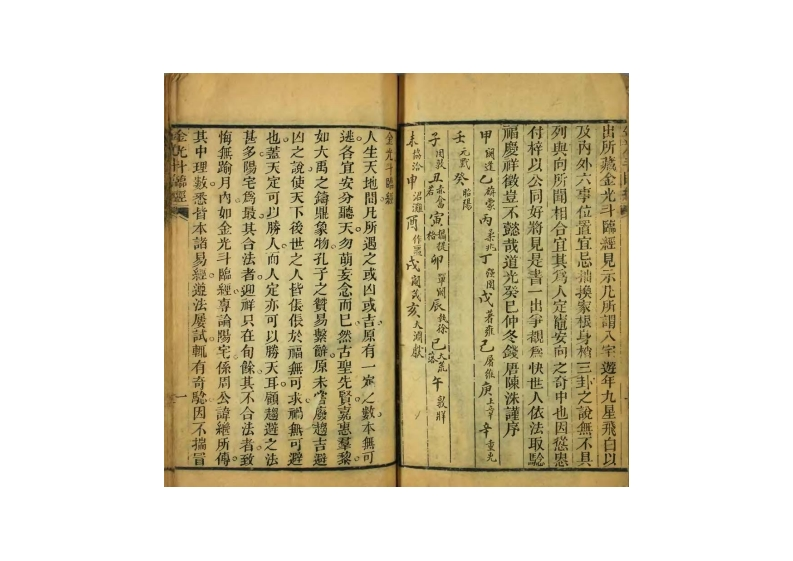 出所藏金光斗臨經見示凡所謂八宅遊年九星飛白以
及內外六事位置宜忌抽換家根身梢三卦之說無不具
列與向所聞相合宜其為人定竈安向之奇中也因慫恿
付梓以公同好將見是書一出爭覩為快世人依法取驗
福慶祥徵豈不懿哉道光癸巳仲冬錢唐陳洙謹序
甲閼逢乙旃蒙丙柔兆丁强圉戊著雍己屠維庚上章辛重光
壬元黓癸昭陽
子困敦丑赤奮若寅攝提格卯單閼辰执徐巳大荒落午敦牂
未協洽申涒灘酉作噩戌閹茂亥大淵獻
金光斗臨經
人生天地間凡所遇之或凶或吉原有一定之數本無可
逃各宜安分聽天勿萌妄念而已然古聖先賢嘉惠羣黎
如大禹之鑄鼎象物孔子之贊易繫辭原未嘗廢趨吉避
凶之說使天下後世之人皆倀倀於福無可求禍無可避
也蓋天定可以勝人而人定亦可以勝天耳顧趨避之法
甚多陽宅為最其合法者迎祥只在旬餘其不合法者致
悔無踰月內如金光斗臨經專論陽宅係周公諱繼所傳
其中理數悉皆本諸易經遵法屢試輒有奇驗因不揣冒
金光斗臨經
一